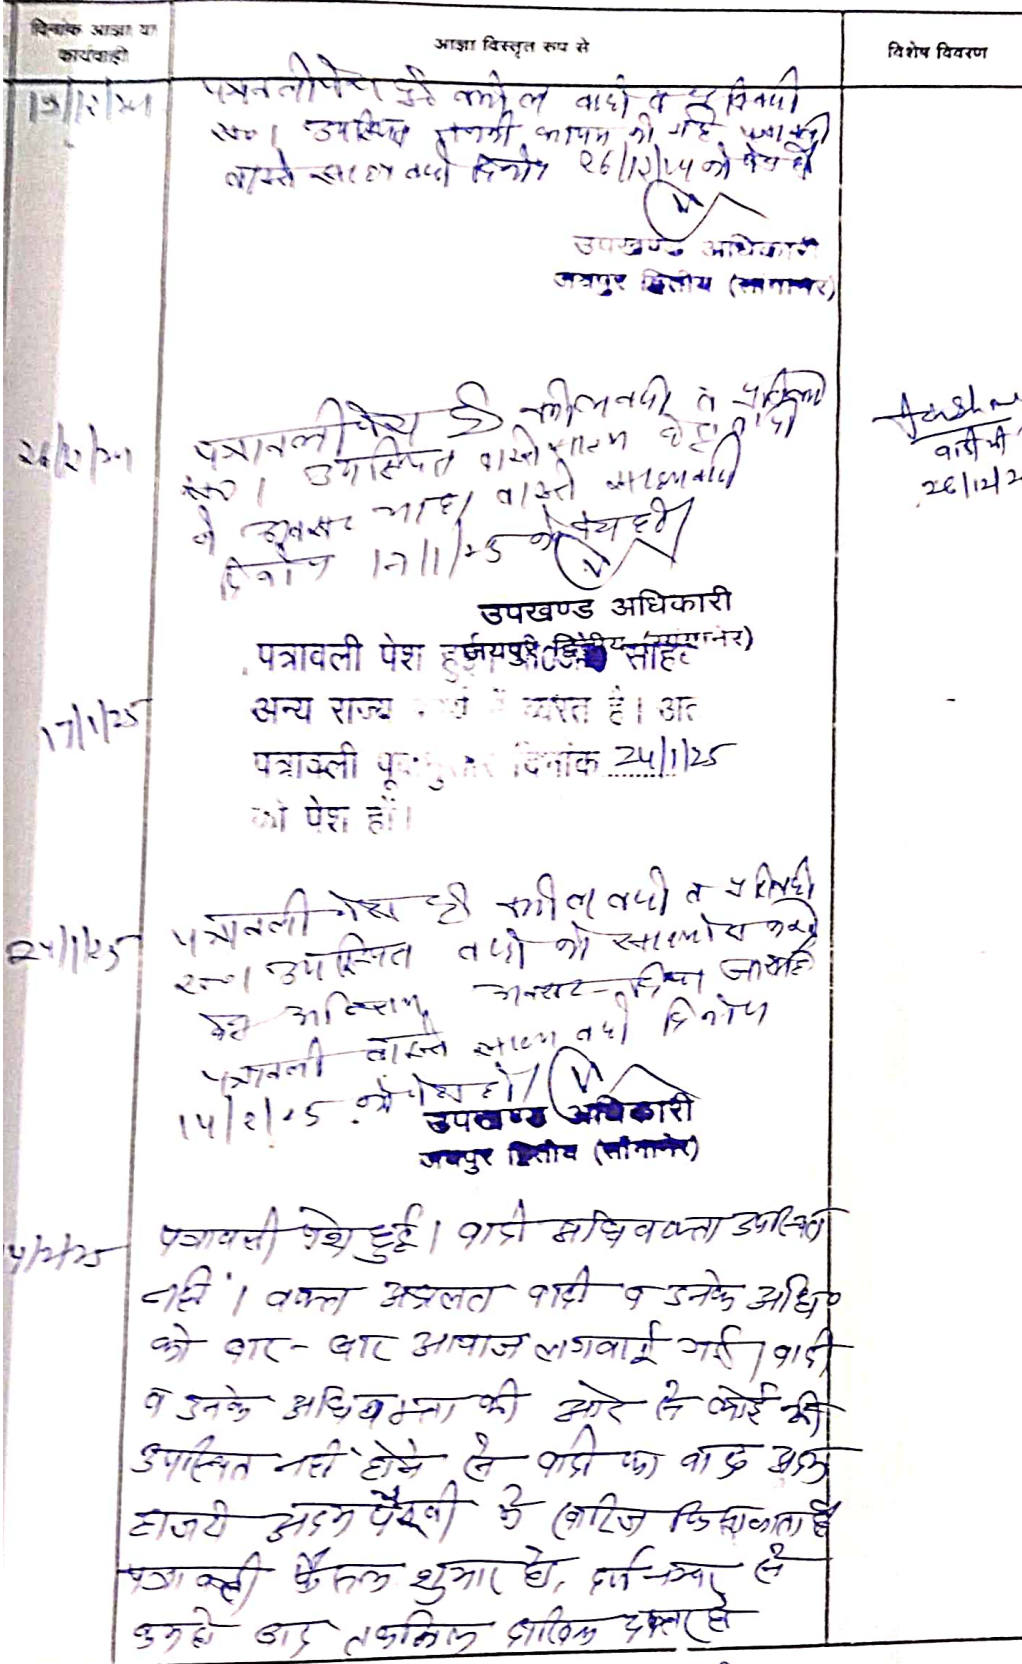 दिनांक आज्ञा या
कार्यवाही
आज्ञा विस्तृत रूप से
विशेष विवरण
पत्रावली पेश हुई वकील वादी व प्रतिवादी
उपस्थित कायम की गई
वास्ते साक्ष्य वादी दिनांक 26/12/24 को पेश हो
उपखण्ड अधिकारी
जयपुर द्वितीय (सांगानेर)
26/12/24
पत्रावली पेश हुई वकील वादी व प्रतिवादी
उपस्थित वास्ते साक्ष्य है। वादी
ने अवसर चाहा वास्ते साक्ष्य वादी
दिनांक 17/1/25 को पेश हो।
वादी
26/12/2
उपखण्ड अधिकारी
जयपुर द्वितीय (सांगानेर)
17/1/25
पत्रावली पेश हुई। साहब
अन्य राज्य में व्यस्त है। अत
पत्रावली दिनांक 24/1/25
को पेश हों।
24/1/25
पत्रावली पेश हुई वकील वादी व प्रतिवादी
उपस्थित वादी को साक्ष्य पेश करने
हेतु अन्तिम अवसर दिया जाता है
पत्रावली वास्ते साक्ष्य वादी दिनांक
14/2/25 को पेश हो।
उपखण्ड अधिकारी
जयपुर द्वितीय (सांगानेर)
4/2/25
पत्रावली पेश हुई। वादी अधिवक्ता उपस्थित
नहीं। वक्त अदालत वादी व उनके अधि०
को बार-बार आवाज लगवाई गई। वादी
व उनके अधिवक्ता की ओर से कोई भी
उपस्थित नहीं होने से वादी का वाद अदम
हाजरी अदम पैरवी में खारिज किया जाता है
पत्रावली फैसल शुमार हो, दर्ज नम्बर से
कम हो बाद तकमिल दाखिल दफ्तर हो